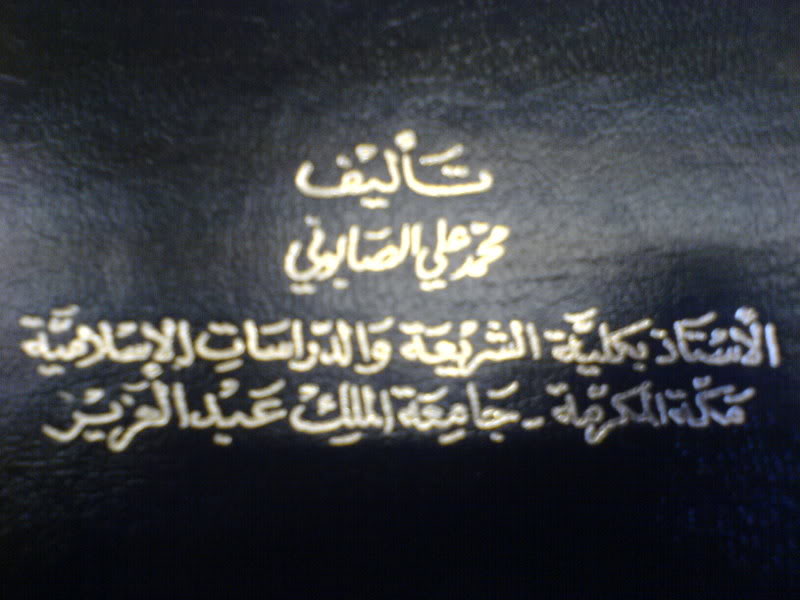 تأليف
محمد علي الصابوني
الأستاذ بكلية الشريعة والدراسات الإسلامية
مكة المكرمة - جامعة الملك عبد العزيز